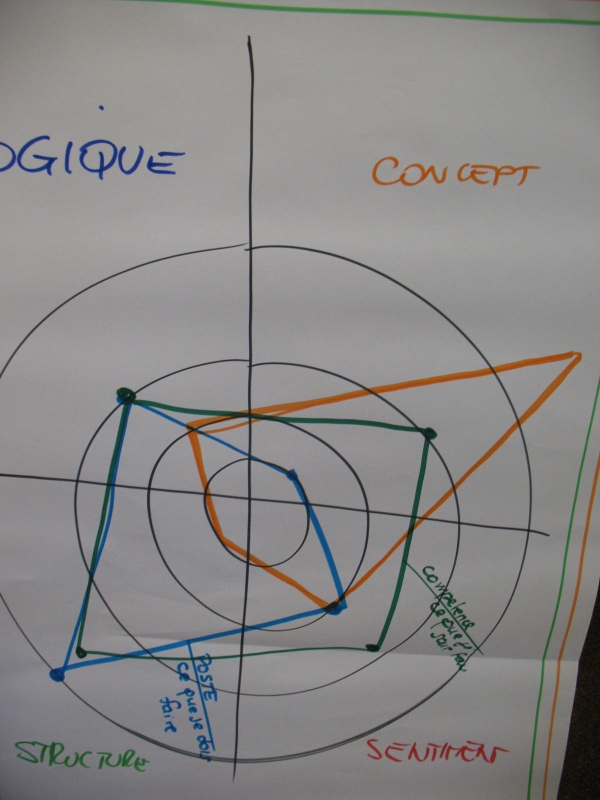 OGIQUE
CONCEPT
compétence
ce que je
sais faire
POSTE
ce que je dois
faire
STRUCTURE
SENTIMENT